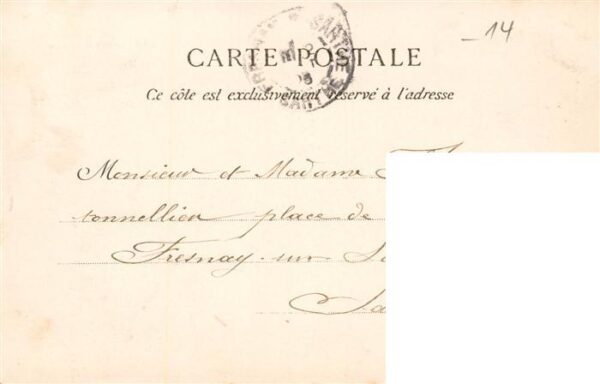 14
CARTE POSTALE
Ce côte est exclusivement réservé à l'adresse
SARTHE
Monsieur et Madame
tonnellier place de
Fresnay-sur